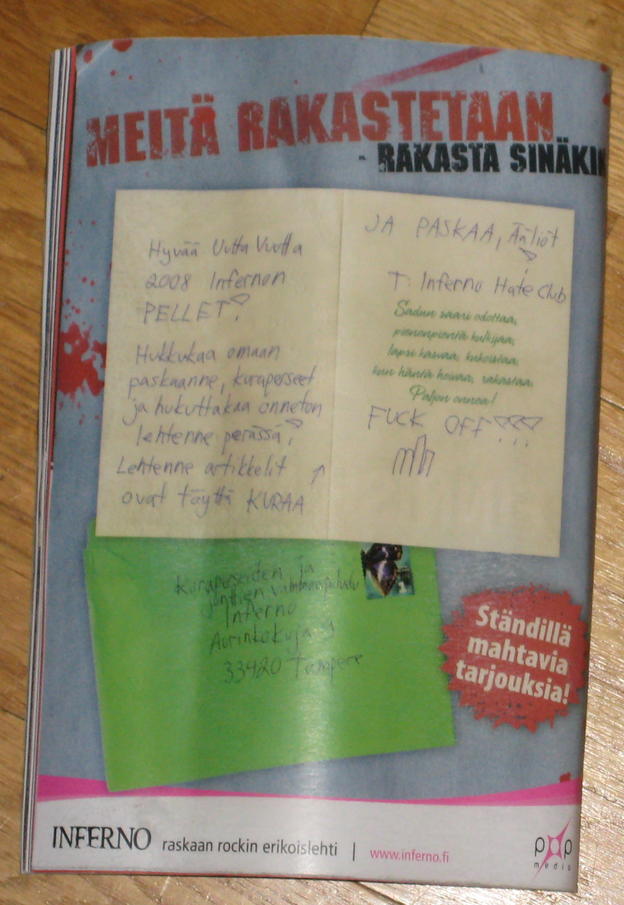 MEITÄ RAKASTETAAN
- RAKASTA SINÄKIN
Hyvää Uutta Vuotta
2008 Infernon
PELLET!
Hukkukaa omaan
paskaanne, kuraperseet
ja hukuttakaa onneton
lehtenne perässä!
Lehtenne artikkelit
ovat täyttä KURAA
JA PASKAA, Ääliöt!
T. Inferno Hate Club
Sadun saari odottaa,
pienenpientä kulkijaa,
lapsi kasvaa, kukoistaa,
kun häntä hoivaa, rakastaa.
Paljon onnea!
FUCK OFF!!!
Kuraperseiden ja
Inferno
Aurinkokuja
33420 Tampere
Ständillä
mahtavia
tarjouksia!
INFERNO raskaan rockin erikoislehti | www.inferno.fi
pop
media